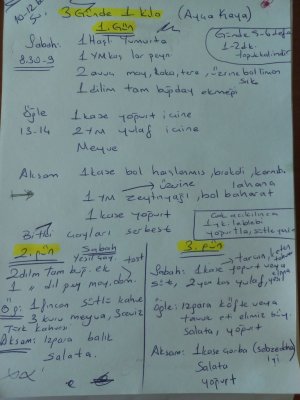 3 Günde 1 kilo (Ayça Kaya)
1. Gün
Günde 5-6 defa
1-2 dk.
Sabah: 1 Haşl Yumurta
8.30-9 1 YM kaş lor peyn
2 avuç may, roka, tere, üzerine bol limon
sık
1 dilim tam buğday ekmeği
Öğle 1 kase yoğurt içine
13-14 2 YM yulaf içine
Meyve
Akşam 1 kase bol haşlanmış, brokoli, karnıb.
üzerine lahana
1 YM zeytinyağı, bol baharat
1 kase yoğurt
Bitki çayları serbest
Çok acıkılınca
1 çk. leblebi
yoğurtla, sütle
2. gün
Sabah
Yeşil çay.
2 dilim tam buğ. ek tost
1 " dil pey may. dom.
Öğ: 1 fincan sütlü kahve
3 kuru meyva, 3 ceviz
Türk kahvesi
Akşam: Izgara balık
salata.
3. gün
Sabah: 1 kase yoğurt veya
süt, 2 yem kaş yulaf, yeşil
tarçın,
Öğle: Izgara köfte veya
tavuk et elimiz büy.
Salata, yoğurt
Akşam: 1 kase çorba (Sebzeden)
Salata
yoğurt